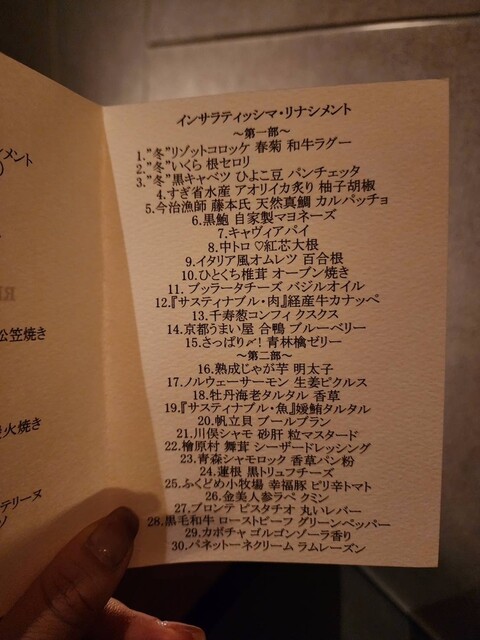 メント
)
松笠焼き
火焼き
テリーヌ
インサラティッシマ・リナシメント
～第一部～
1."冬"リゾットコロッケ 春菊 和牛ラグー
2."冬"いくら 根セロリ
3."冬"黒キャベツ ひよこ豆 パンチェッタ
4.すぎ省水産 アオリイカ炙り 柚子胡椒
5.今治漁師 藤本氏 天然真鯛 カルパッチョ
6.黒鮑 自家製マヨネーズ
7.キャヴィアパイ
8.中トロ ♡紅芯大根
9.イタリア風オムレツ 百合根
10.ひとくち椎茸 オーブン焼き
11. ブッラータチーズ バジルオイル
12.『サスティナブル・肉』経産牛カナッペ
13.千寿葱コンフィ クスクス
14.京都うまい屋 合鴨 ブルーベリー
15.さっぱり〆! 青林檎ゼリー
～第二部～
16.熟成じゃが芋 明太子
17.ノルウェーサーモン 生姜ピクルス
18.牡丹海老タルタル 香草
19.『サスティナブル・魚』媛鮪タルタル
20.帆立貝 ブールブラン
21.川俣シャモ 砂肝 粒マスタード
22.檜原村 舞茸 シーザードレッシング
23.青森シャモロック 香草パン粉
24.蓮根 黒トリュフチーズ
25.ふくどめ小牧場 幸福豚 ピリ辛トマト
26.金美人参ラペ クミン
27.ブロンテ ピスタチオ 丸いレバー
28.黒毛和牛 ローストビーフ グリーンペッパー
29.カボチャ ゴルゴンゾーラ香り
30.パネットーネクリーム ラムレーズン